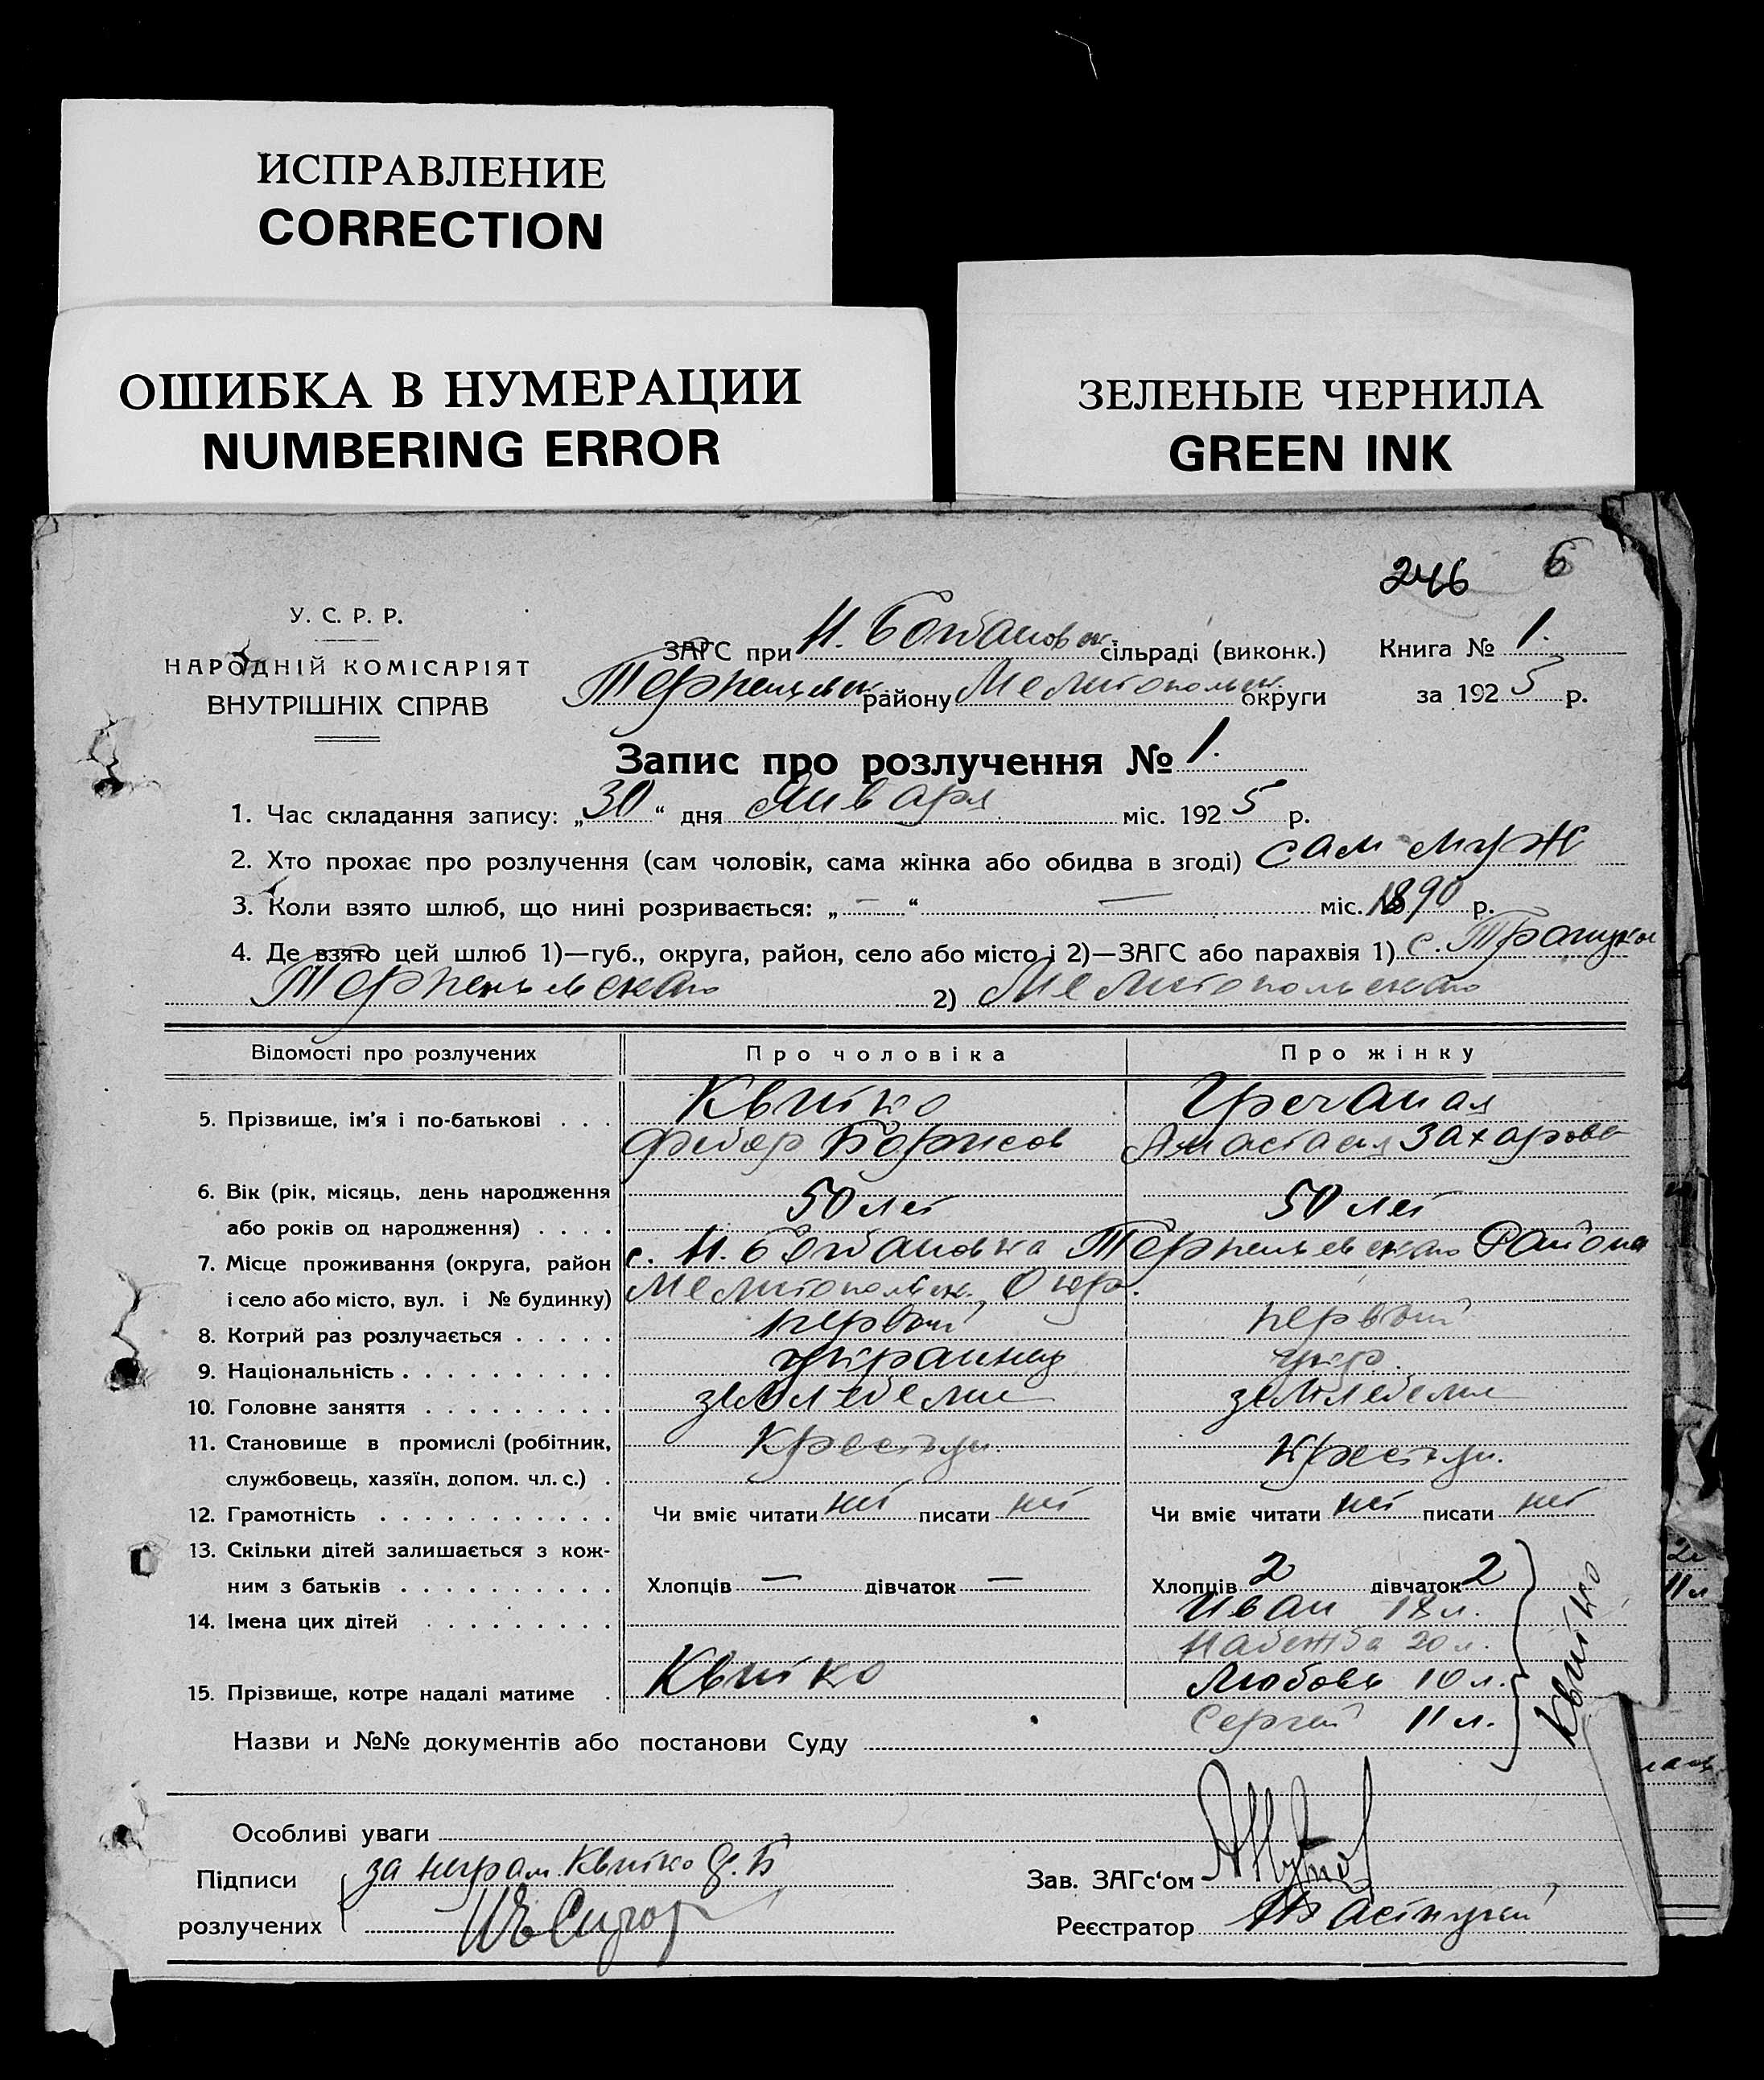 ИСПРАВЛЕНИЕ
CORRECTION
ОШИБКА В НУМЕРАЦИИ
NUMBERING ERROR
ЗЕЛЕНЫЕ ЧЕРНИЛА
GREEN INK
246 6
У. С. Р. Р.
НАРОДНІЙ КОМІСАРІЯТ
ВНУТРІШНІХ СПРАВ
ЗАГС при Н. Богдановск сільраді (виконк.) Книга № 1.
району Мелитопольск. округи за 1925 р.
Запис про розлучення № 1.
1. Час складання запису: „30“ дня Января міс. 1925 р.
2. Хто прохає про розлучення (сам чоловік, сама жінка або обидва в згоді) сам муж
3. Коли взято шлюб, що нині розривається: „—“ — міс. 1890 р.
4. Де взято цей шлюб 1)—губ., округа, район, село або місто і 2)—ЗАГС або парахвія 1) с.
2) Мелитопольскаго
Відомості про розлучених Про чоловіка Про жінку
5. Прізвище, ім'я і по-батькові . . . Квитко Гречаная
Федор Борисов Анастасия Захарова
6. Вік (рік, місяць, день народження
або років од народження) . . . . 50 лет 50 лет
7. Місце проживання (округа, район с. Н. Богдановка Терпеньевскаго Района
і село або місто, вул. і № будинку) Мелитопольск. Окр.
8. Котрий раз розлучається . . . . . первый первый
9. Національність . . . . . . . . . . украинец укр.
10. Головне заняття . . . . . . . . . земледелие земледелие
11. Становище в промислі (робітник,
службовець, хазяїн, допом. чл. с.) . Крестьян. Крестьян.
12. Грамотність . . . . . . . . . . . Чи вміє читати нет писати нет Чи вміє читати нет писати нет
13. Скільки дітей залишається з кож-
ним з батьків . . . . . . . . . . Хлопців — дівчаток — Хлопців 2 дівчаток 2
14. Імена цих дітей . . . . . . . . . Иван 18 л.
Надежда 20 л.
15. Прізвище, котре надалі матиме . Квитко Любовь 10 л.
Сергей 11 л.
Квитко
Назви и №№ документів або постанови Суду
Особливі уваги
Підписи за неграм. Квитко Ф. Б
розлучених
Зав. ЗАГс‘ом
Реєстратор
11 л